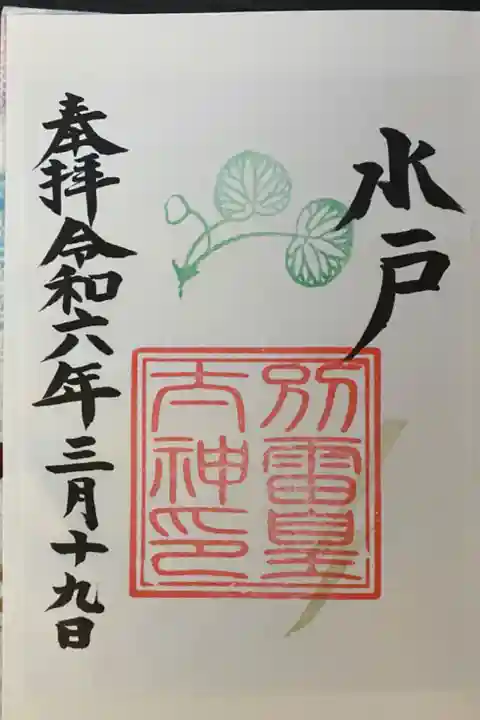 水戸
別雷皇
太神印
奉拝令和六年三月十九日